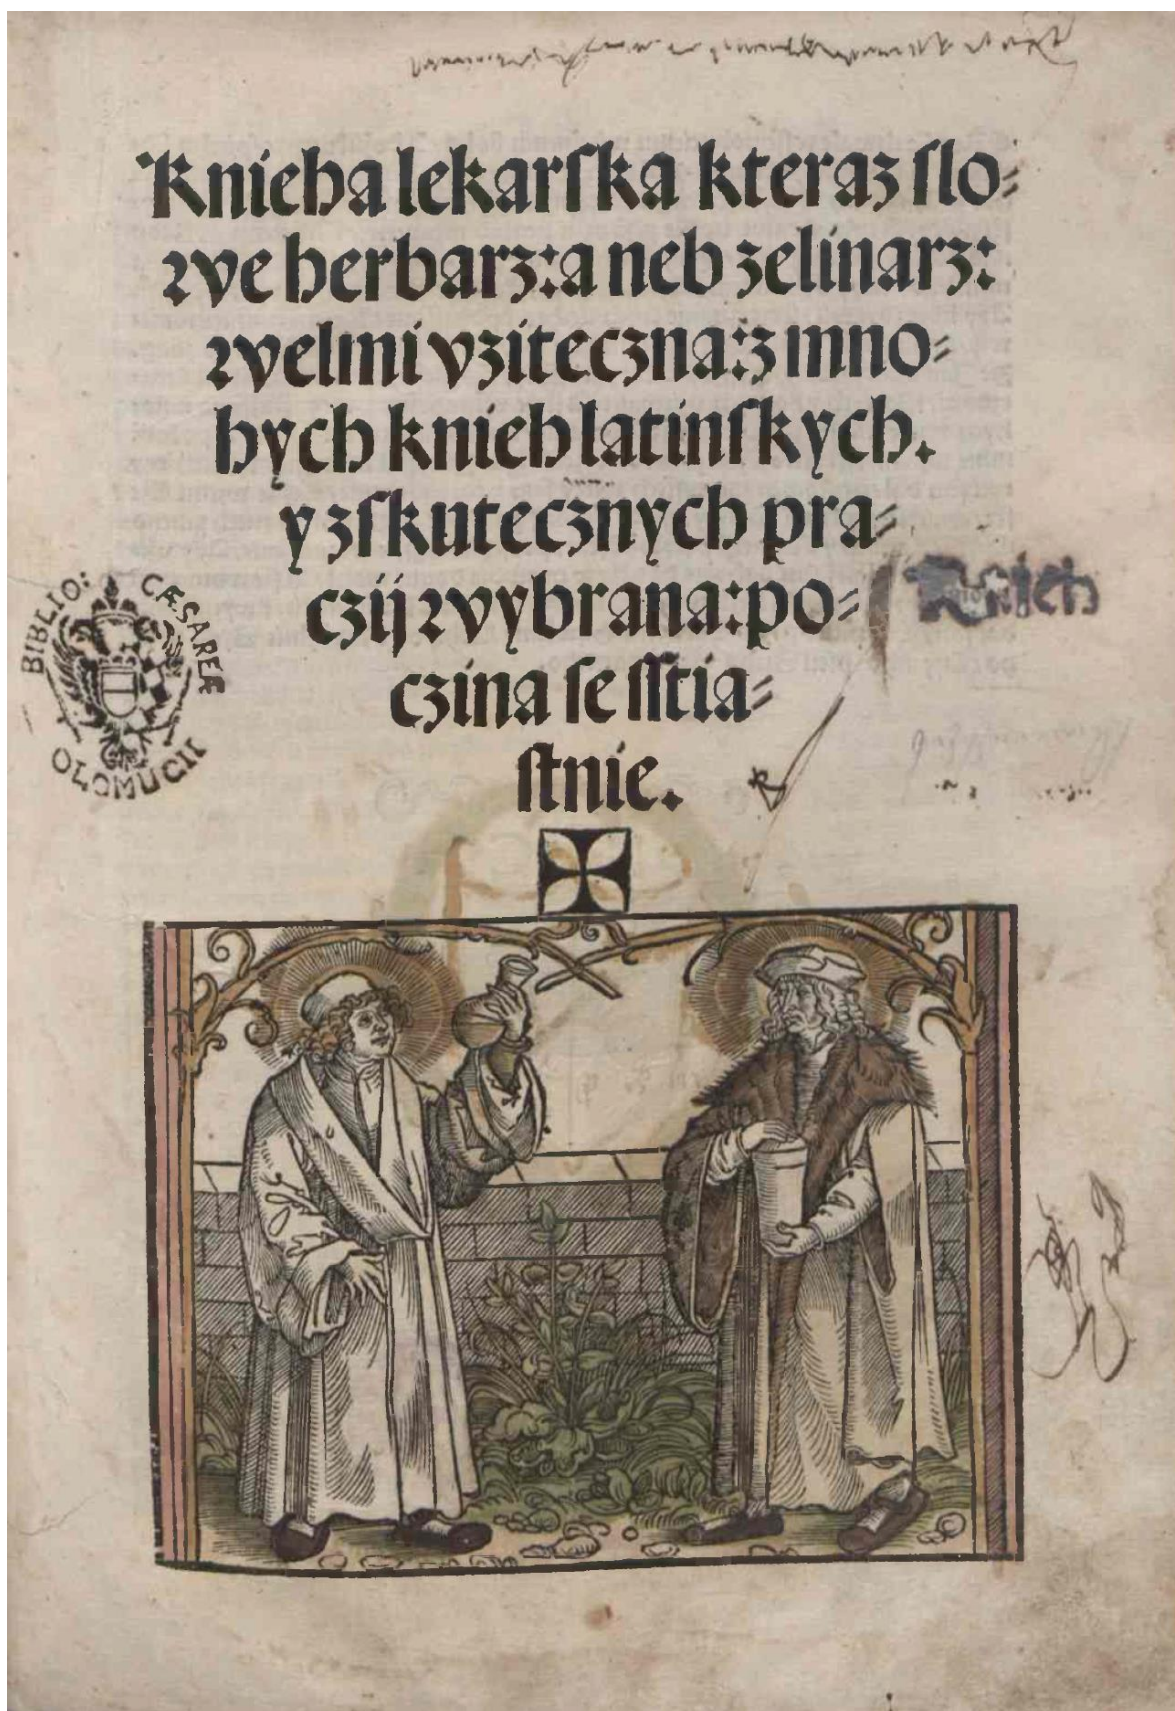 Knieha lekarſka kteraz ſlo⸗
we herbarz: a neb zelinarz:
welmi vziteczna: z mno⸗
hych knieh latinſkych.
y zſkutecznych pra⸗
czij wybrana: po⸗
czina ſe ſſtia⸗
ſtnie.
BIBLIO: CÆSAREÆ
OLOMUCII